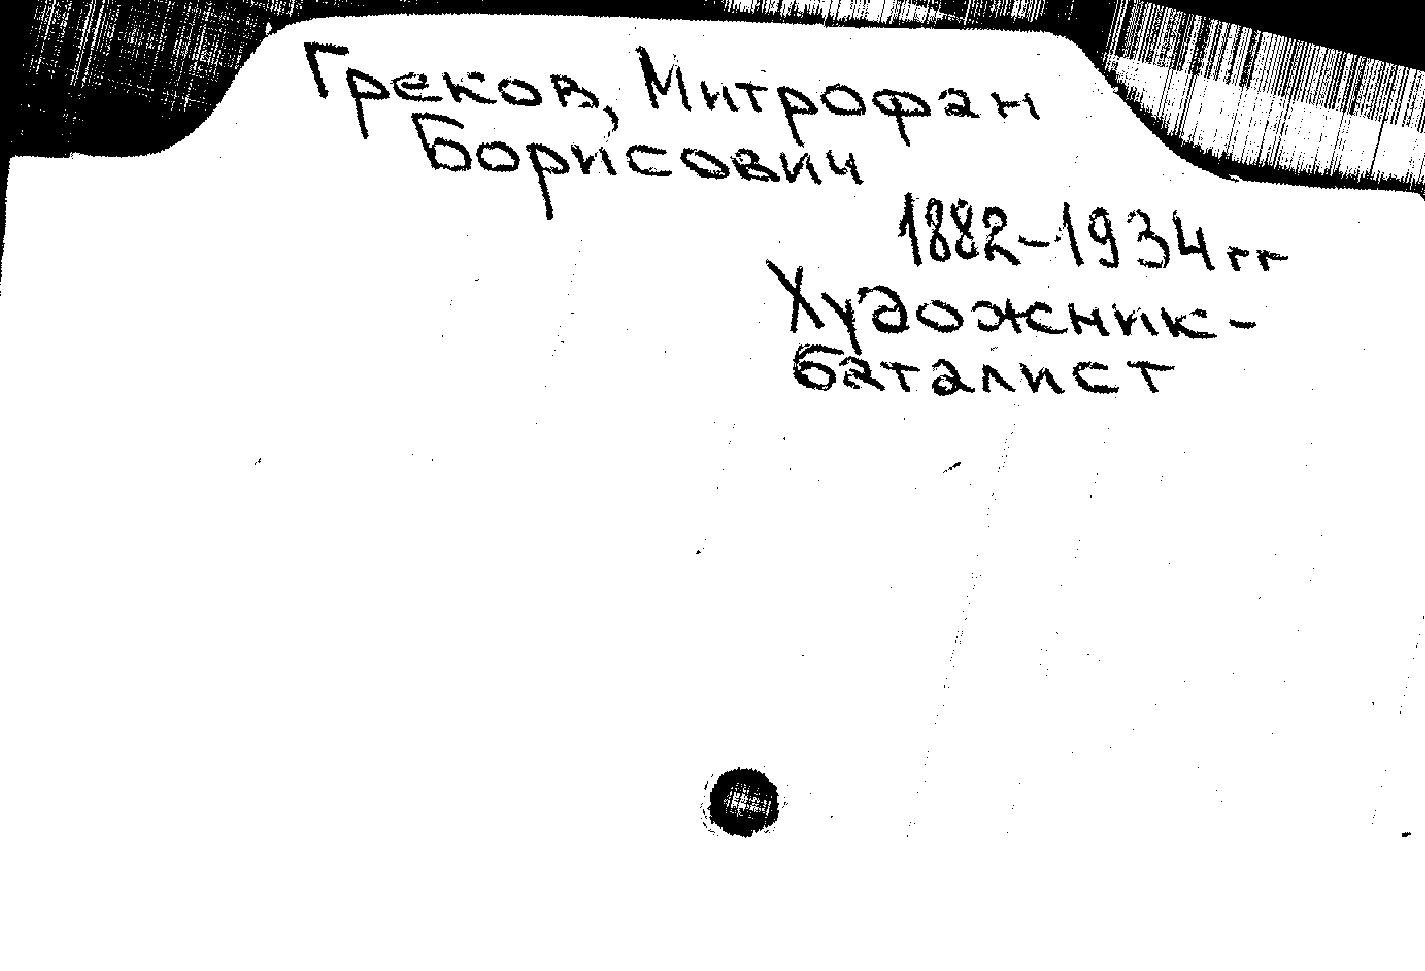 Греков, Митрофан
Борисович
1882-1934 гг
Художник-
баталист